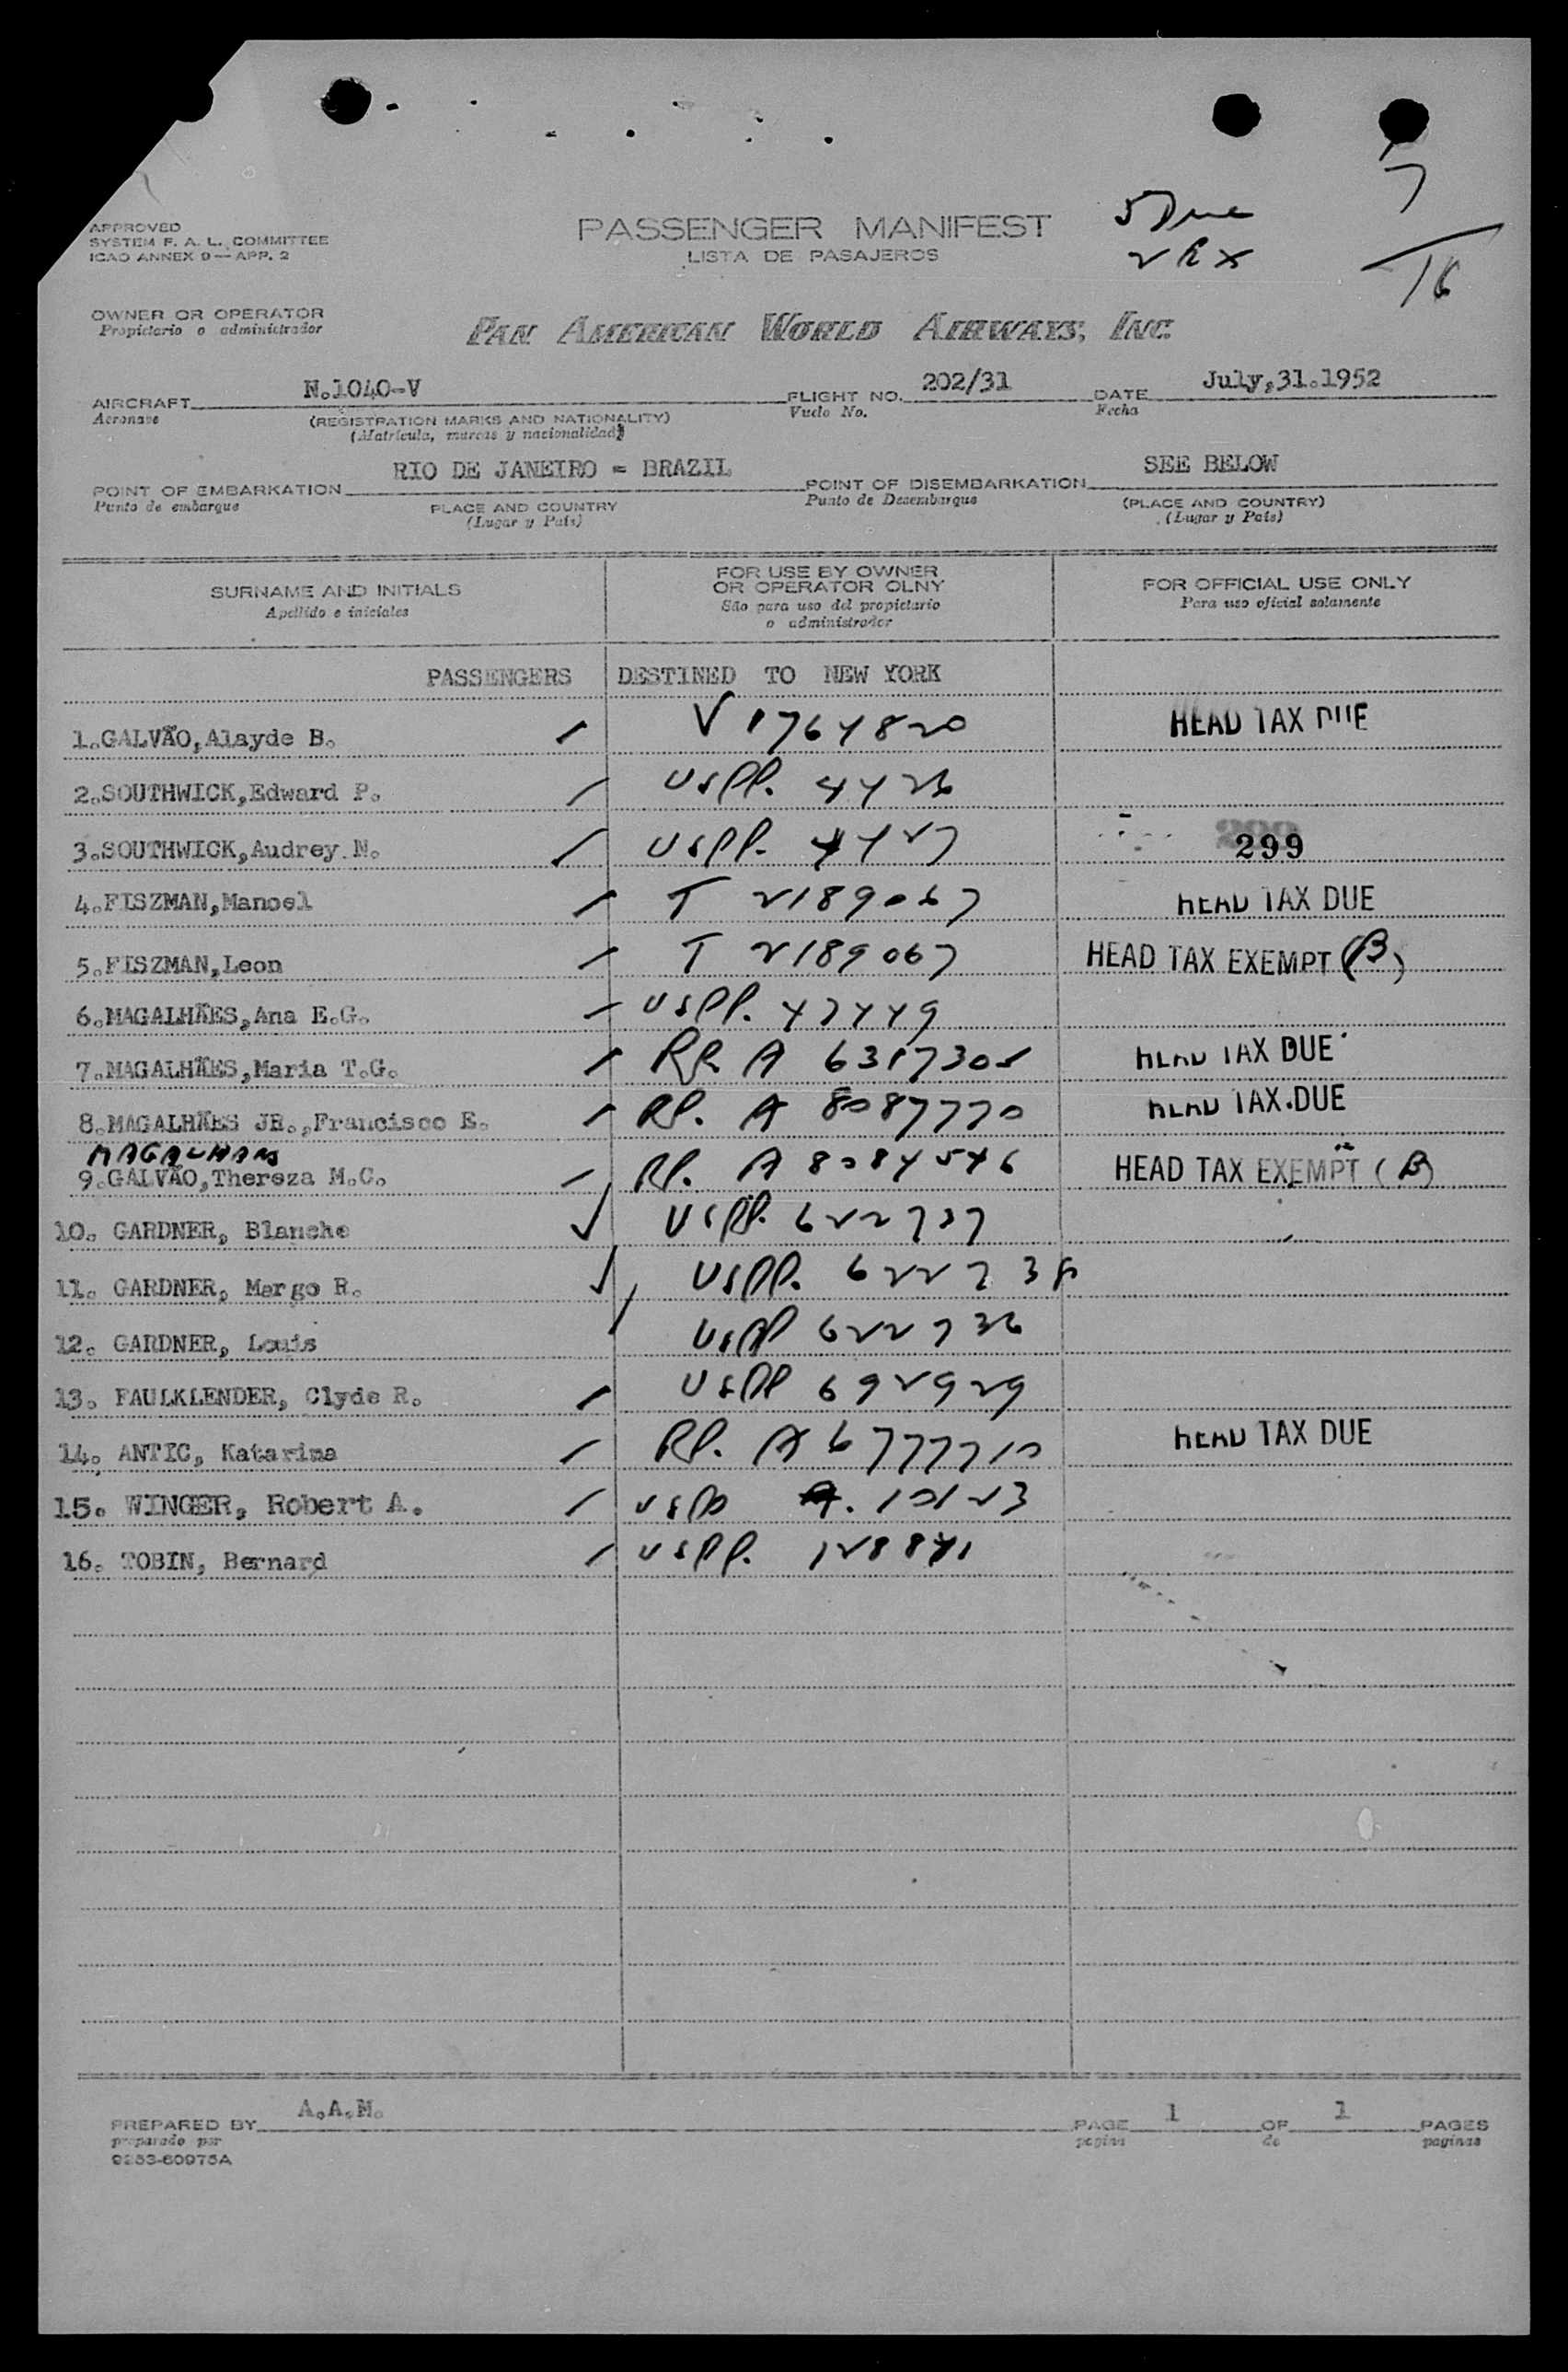 5 Due
7
PASSENGER MANIFEST
2 EX
/16
LISTA DE PASAJEROS
APPROVED
SYSTEM F. A. L. COMMITTEE
ICAO ANNEX 9 — APP. 2
OWNER OR OPERATOR
Propietario o administrador
PAN AMERICAN WORLD AIRWAYS, INC.
AIRCRAFT N.1040-V FLIGHT NO. 202/31 DATE July,31.1952
Aeronave (REGISTRATION MARKS AND NATIONALITY) Vuelo No. Fecha
(Matrícula, marcas y nacionalidad)
POINT OF EMBARKATION RIO DE JANEIRO = BRAZIL POINT OF DISEMBARKATION SEE BELOW
Punto de embarque PLACE AND COUNTRY Punto de Desembarque (PLACE AND COUNTRY)
(Lugar y País) (Lugar y País)
SURNAME AND INITIALS FOR USE BY OWNER OR OPERATOR OLNY FOR OFFICIAL USE ONLY
Apellido e iniciales São para uso del propietario o administrador Para uso oficial solamente
PASSENGERS DESTINED TO NEW YORK
1.GALVÃO,Alayde B. V 1764820 HEAD TAX DUE
2.SOUTHWICK,Edward P. USPP. 4426
3.SOUTHWICK,Audrey N. USPP. 4427 299
4.FISZMAN,Manoel T 2189067 HEAD TAX DUE
5.FISZMAN,Leon T 2189067 HEAD TAX EXEMPT (B)
6.MAGALHÃES,Ana E.G. USPP. 47449
7.MAGALHÃES,Maria T.G. RP. A 6317305 HEAD TAX DUE
8.MAGALHÃES JR.,Francisco E. RP. A 8087770 HEAD TAX DUE
MAGALHAES
9.GALVÃO,Thereza M.C. RP. A 8084546 HEAD TAX EXEMPT (B)
10. GARDNER, Blanche USPP. 622737
11. GARDNER, Margo R. USPP. 622738
12. GARDNER, Louis USPP 622736
13. FAULKLENDER, Clyde R. USPP 692929
14. ANTIC, Katarina RP. A 6777710 HEAD TAX DUE
15. WINGER, Robert A. USPP A. 10123
16. TOBIN, Bernard USPP. 128841
PREPARED BY A.A.M. PAGE 1 OF 1 PAGES
preparado por pagina de paginas
9253-60975A